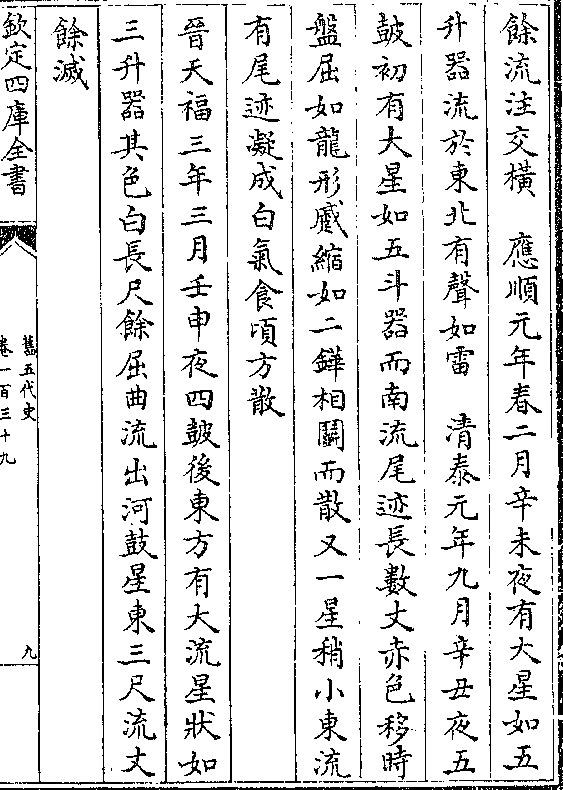 餘流注交横　應順元年春二月辛未夜有大星如五
升器流於東北有聲如雷　清泰元年九月辛丑夜五
鼓初有大星如五斗器而南流尾迹長數丈赤色移時
盤屈如龍形蹙縮如二鏵相鬬而散又一星稍小東流
有尾迹凝成白氣食頃方散
晉天福三年三月壬申夜四鼓後東方有大流星狀如
三升器其色白長尺餘屈曲流出河鼓星東三尺流丈
餘滅
欽定四庫全書
舊五代史
卷一百三十九
九